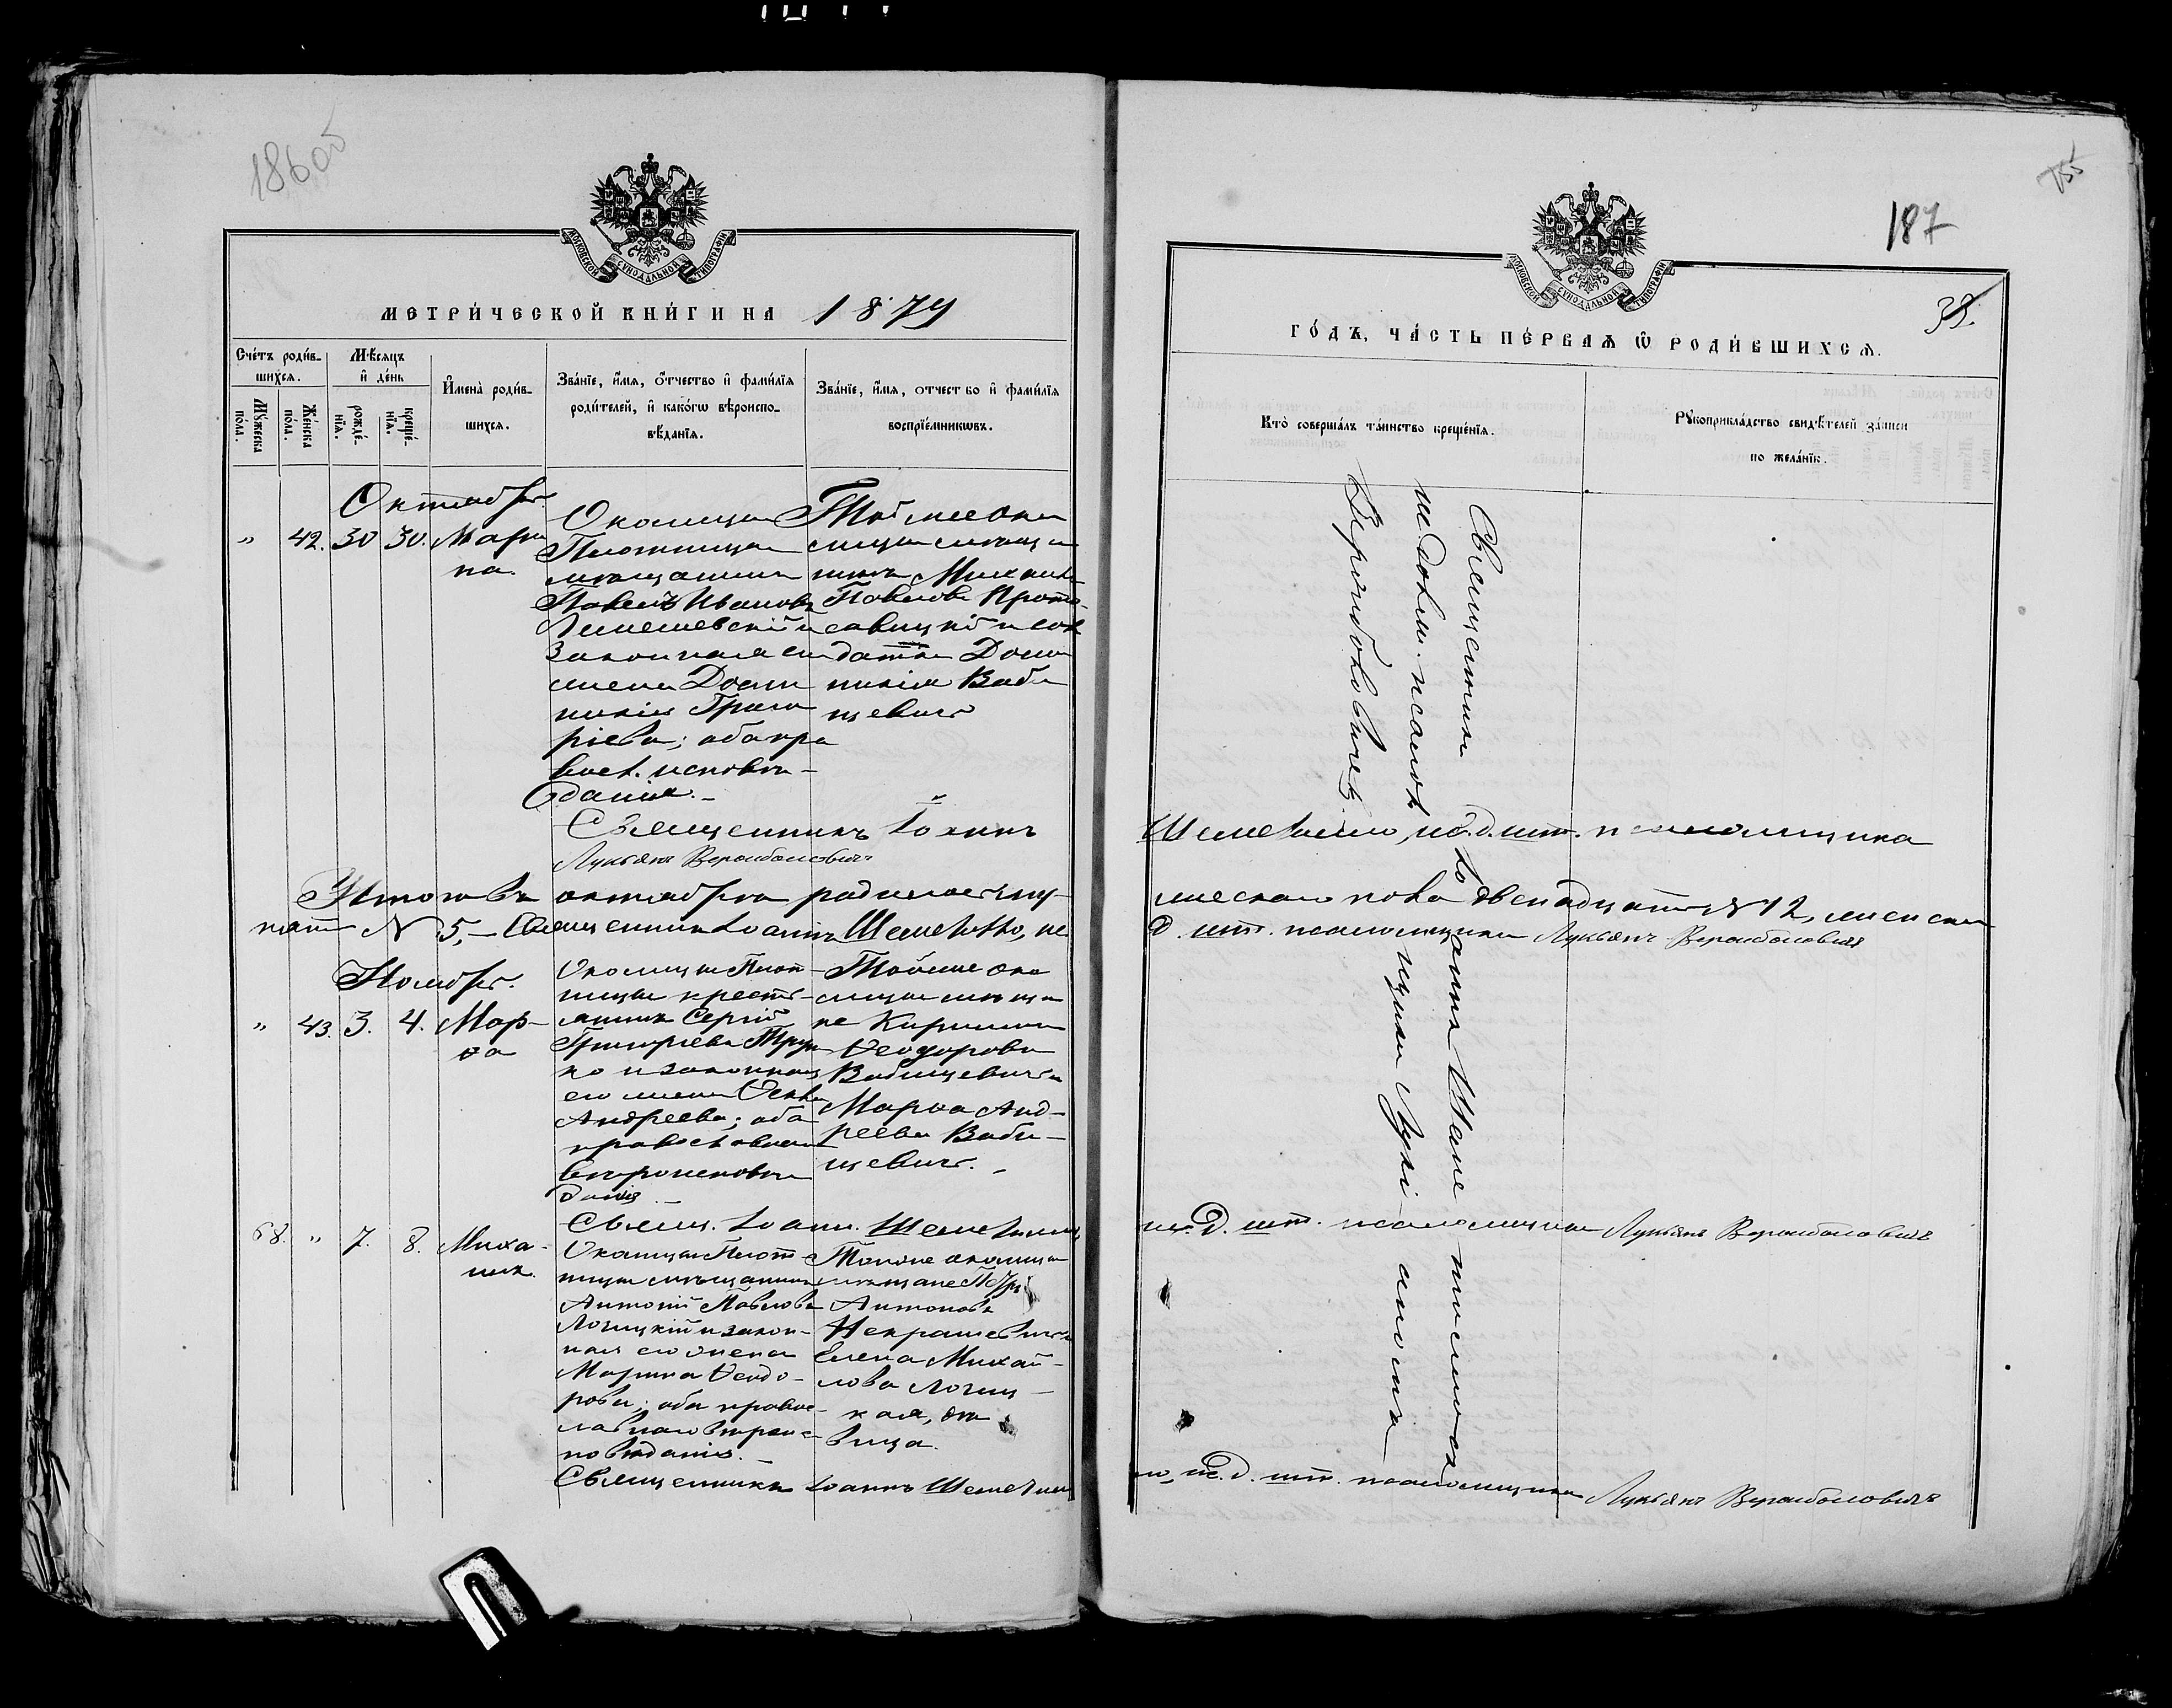 186об
МОСКОВСКОЙ СѴНОДАЛЬНОЙ ТИПОГРАФІИ
МЕТРИ́ЧЕСКОЙ КНИ́ГИ НА 1879
Сче́тъ роди́в-
шихсѧ.
Мꙋ́жеска
по́ла.
Же́нска
по́ла.
Мѣ́сѧцъ
и҆ де́нь
рожде́-
нїѧ.
креще́-
нїѧ.
И҆мена̀ роди́в-
шихсѧ.
Зва́нїе, и҆́мѧ, ѻ҆́тчество и҆ фами́лїѧ
роди́телей, и҆ како́гѡ вѣроиспо-
вѣ́данїѧ.
Зва́нїе, и҆́мѧ, отчество и҆ фами́лїѧ
воспрїе́мникѡвъ.
Октябрь.
" 42. 30 30. Мари
на.
Околицы
Плотницы
мѣщанинъ
Павелъ Ивановъ
Лемешевскій и
законная его
жена Доми
никія Григо
ріева; оба пра
восл. исповѣ-
данія.-
Той же око
лицы мѣща
нинъ Михаилъ
Павловъ Прото-
савицкій и сол
датка Доми
никія Баби
щевичъ
Священникъ Іоаннъ
Лукьянъ Вероибоковичъ
Итого въ октябрѣ родилось му-
N 5,- Священникъ Іоаннъ Шеметилло,
Ноябрь.
" 43. 3. 4. Мар-
ѳа
Околицы Плот-
ницы кресть-
янинъ Сергій
Григорьевъ
и законная
его жена
Андреева; оба
православнаго
вѣроисповѣ
данія.-
Той же око
лицы мѣща
не Кириллъ
Ѳеодоровъ
Бабищевичъ и
Марѳа Анд-
реева Баби-
щевичъ.-
Свящ. Іоан. Шеметилло,
68. " 7. 8. Миха-
илъ.
Околицы Плот
ницы мѣщанинъ
Антоній Павловъ
Логицкій и закон-
ная его жена
Марина Ѳеодо-
рова; оба правос-
лавнаго вѣроис-
повѣданія.-
Той же околицы
мѣщане
Антоновъ
Некрашевичъ и
Елена Михай-
лова Логиц-
кая, дѣ
вица.
Священникъ Іоаннъ Шеметил
155
187
МОСКОВСКОЙ СѴНОДАЛЬНОЙ ТИПОГРАФІИ
33.
ГО́ДЪ, ЧА́СТЬ ПЕ́РВАѦ Ѽ РОДИ́ВШИХСѦ.
Кто̀ соверша́лъ та́инство креще́нїѧ.
Рꙋкоприкла́дство свидѣ́телей за́писи
по жела́нїю.
Священникъ Іоаннъ
псалом щикъ
Вероибоковичъ.
Шеметилло, и.д. шт. псаломщика
жескаго пола двенадцать N 12, женскаго
д. шт. псаломщика Лукьянъ Вероибоковичъ
и. д. шт. псаломщика Лукьянъ Вероибоковичъ
ло, и. д. шт. псаломщика Лукьянъ Вероибоковичъ